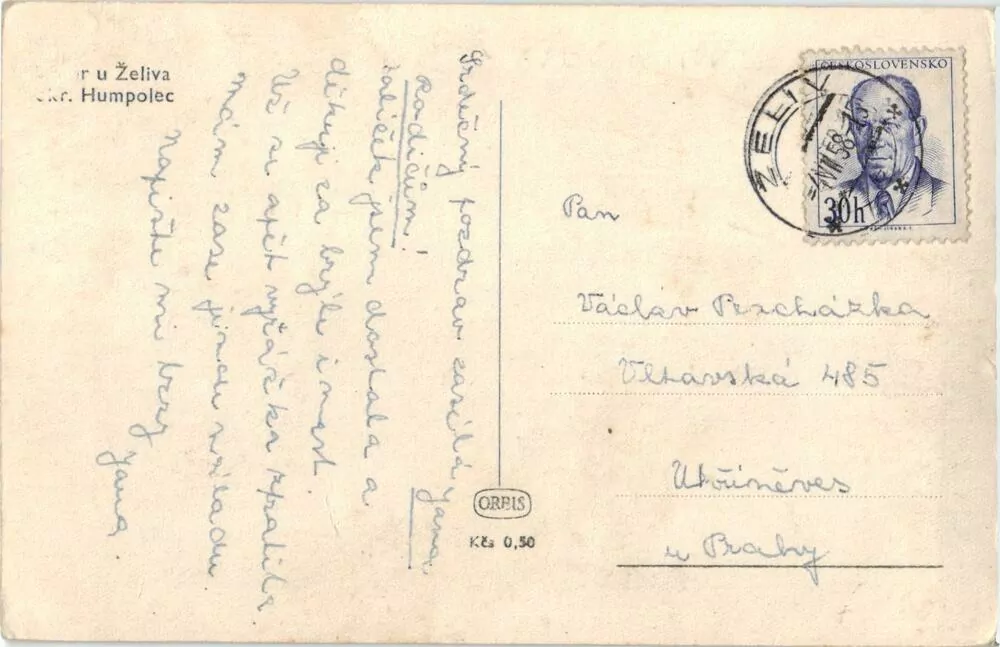 r u Želiva
okr. Humpolec
Srdečný pozdrav zasílá Jana
Rodičům!
balíček jsem dostala a
děkuji za brýle i mast.
Už se opět vyrážka ztratila
mám zase jinou náladu
Napište mi brzy
Jana
ORBIS
Kčs 0,50
ČESKOSLOVENSKO
30h
ŽELIV
Pan
Václav Procházka
Vltavská 485
Uhříněves
u Prahy